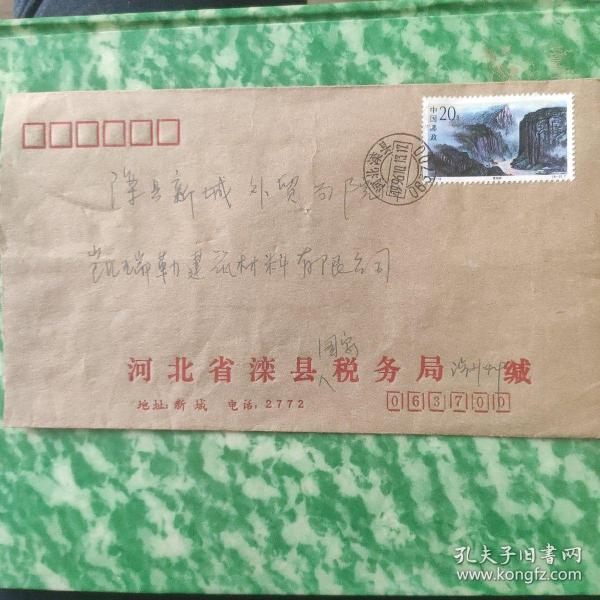 中国邮政
20分
河北滦县
1996.10.13.17
滦县新城 外贸局院
凯瑞勒建筑材料有限公司
国家
河北省滦县税务局 缄
地址:新城 电话:2772
063700
孔夫子旧书网
www.kongfz.com